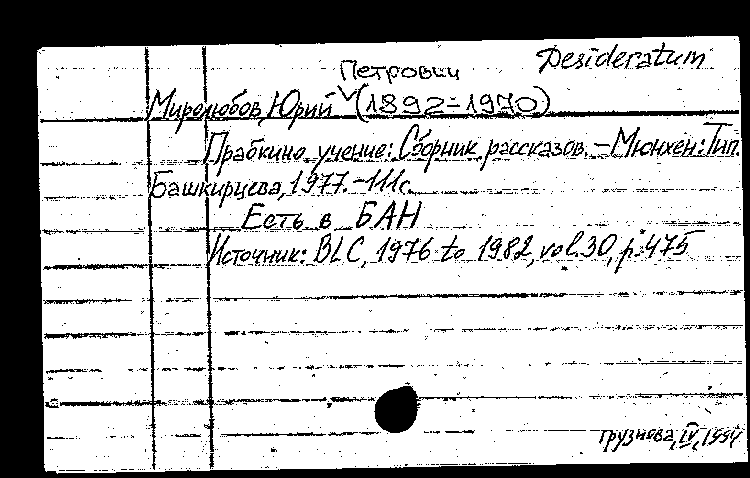 Desideratum
Петрович
Миролюбов, Юрий (1892-1970)
Прабкино учение: Сборник рассказов. – Мюнхен: Тип.
Башкирцева, 1977. – 111 с.
Есть в БАН
Источник: BLC, 1976 to 1982, vol. 30, p. 475
Грузнова, IV, 1994